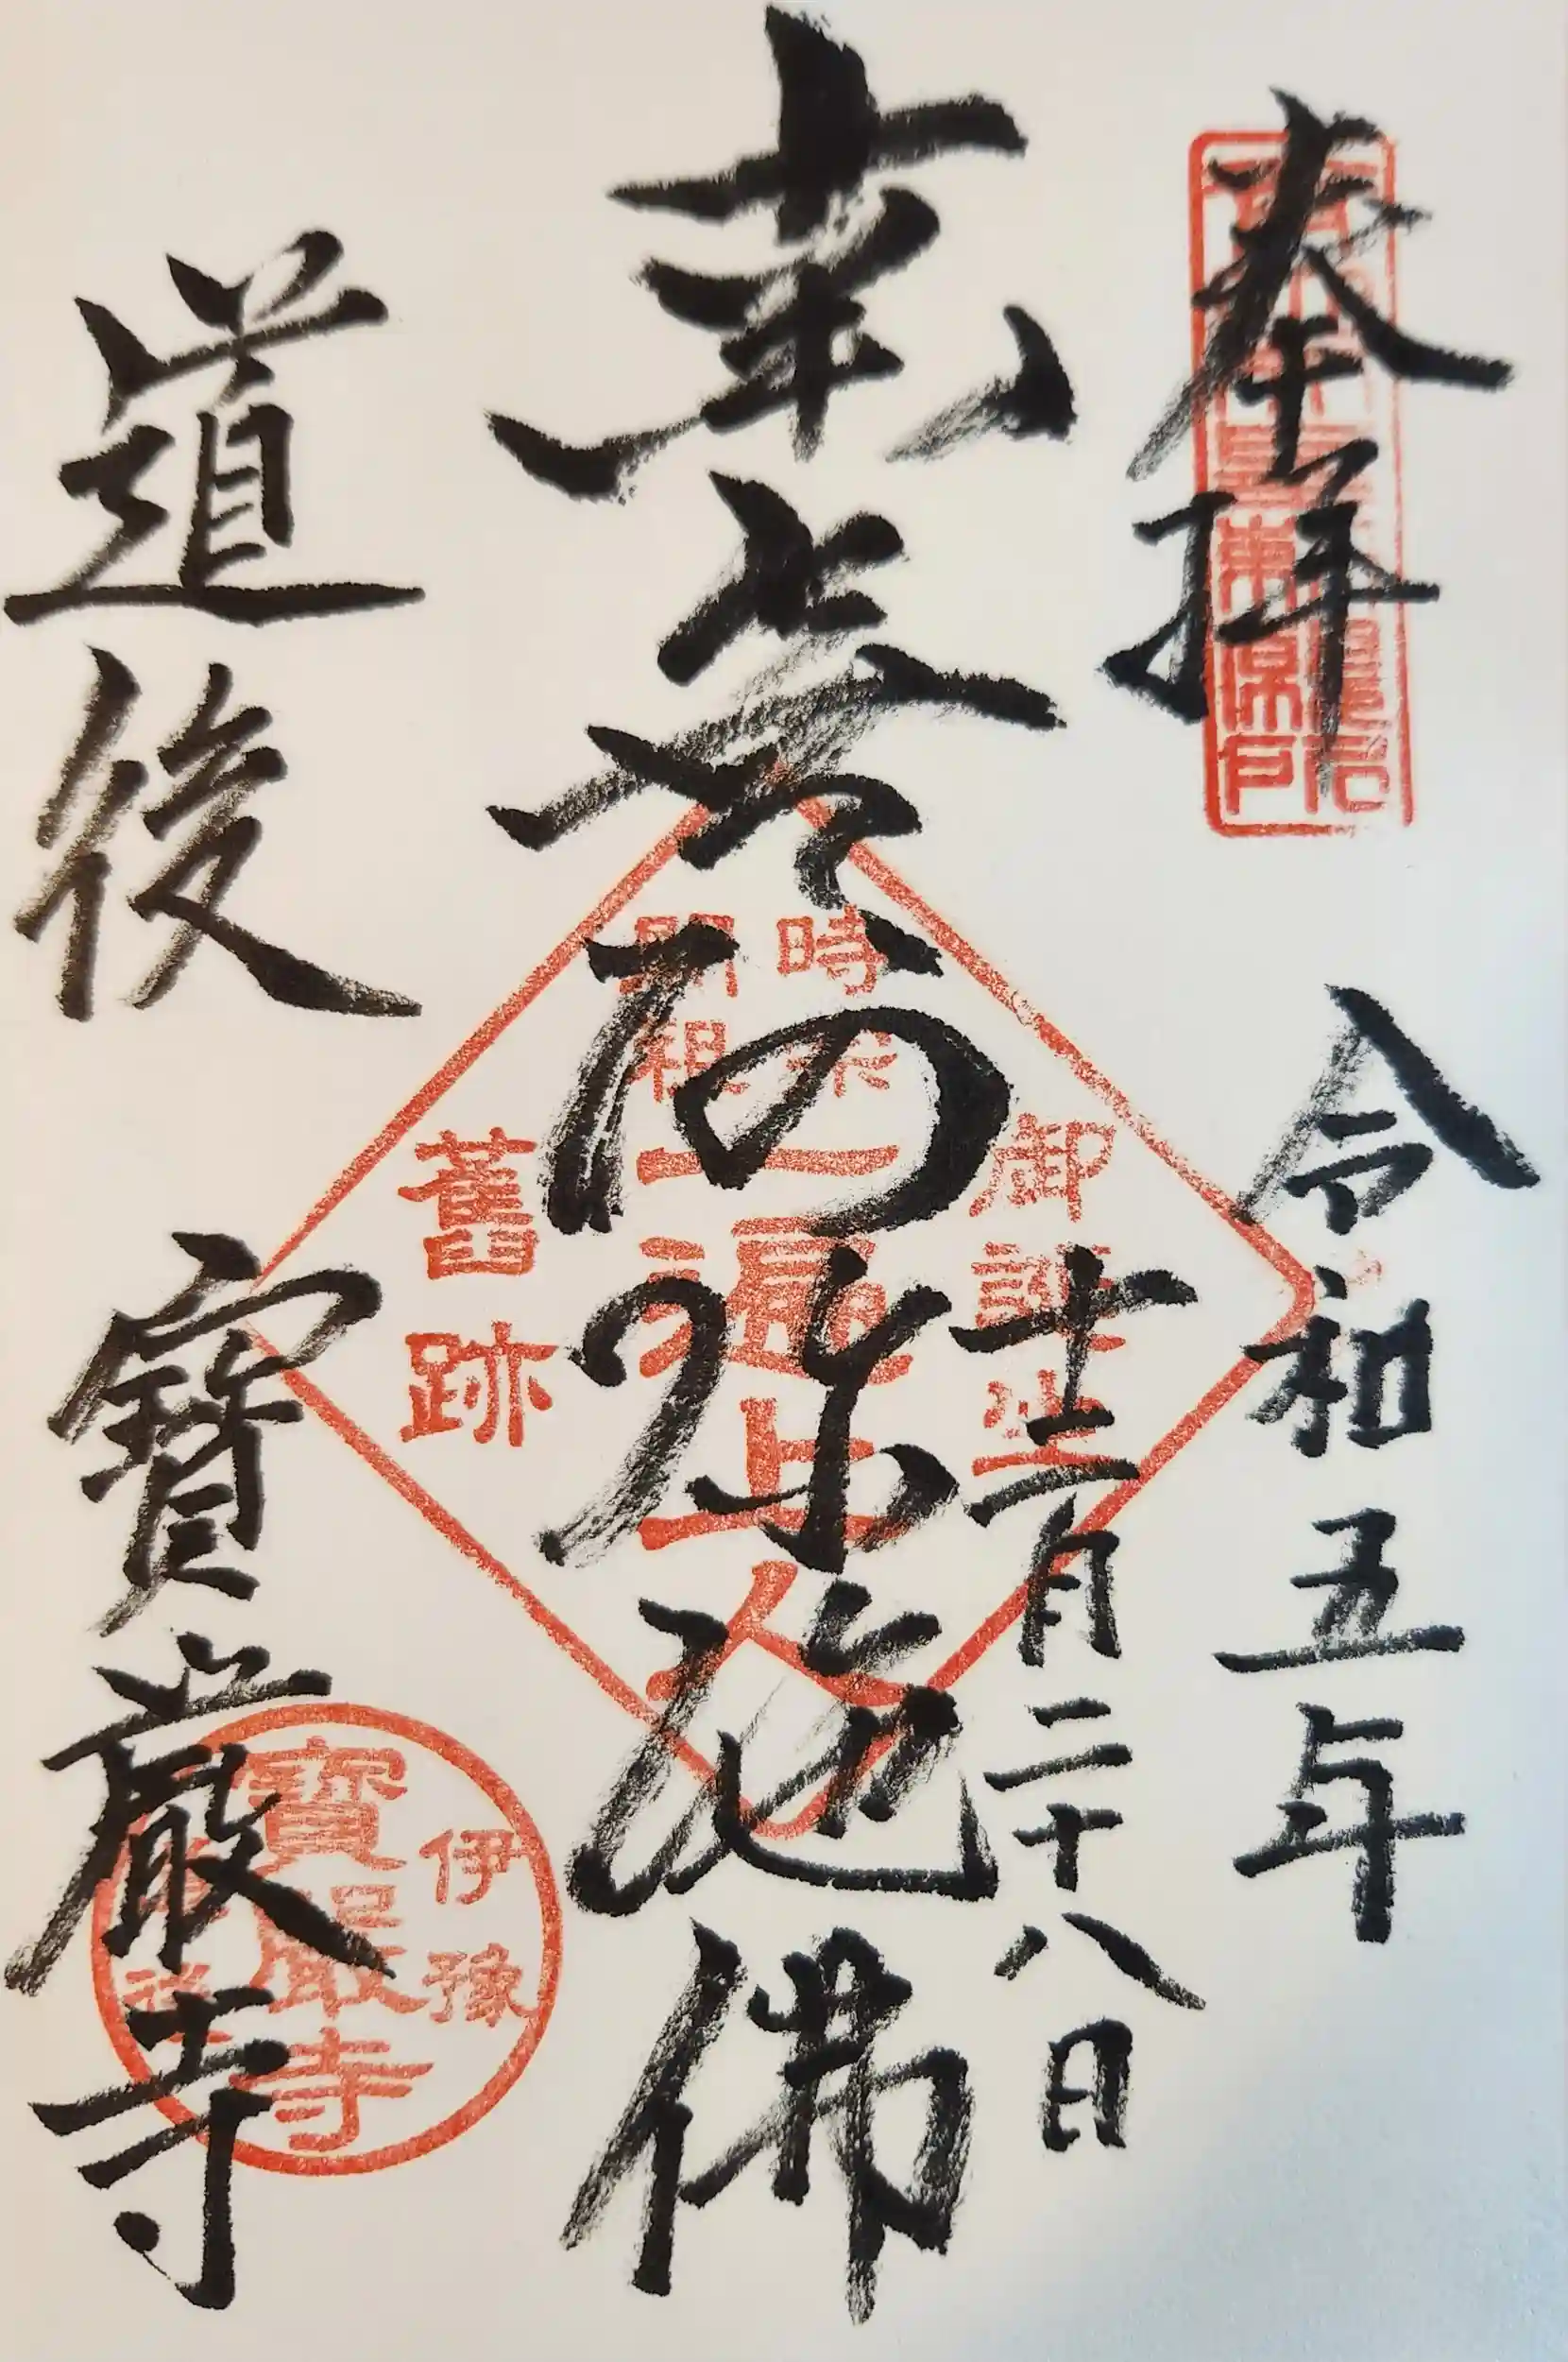 奉拝
令和五年
十二月二十八日
南無阿弥陀佛
道後
寶嚴寺
時宗
開祖
御誕生
一遍上人
舊跡
伊豫
寶嚴寺